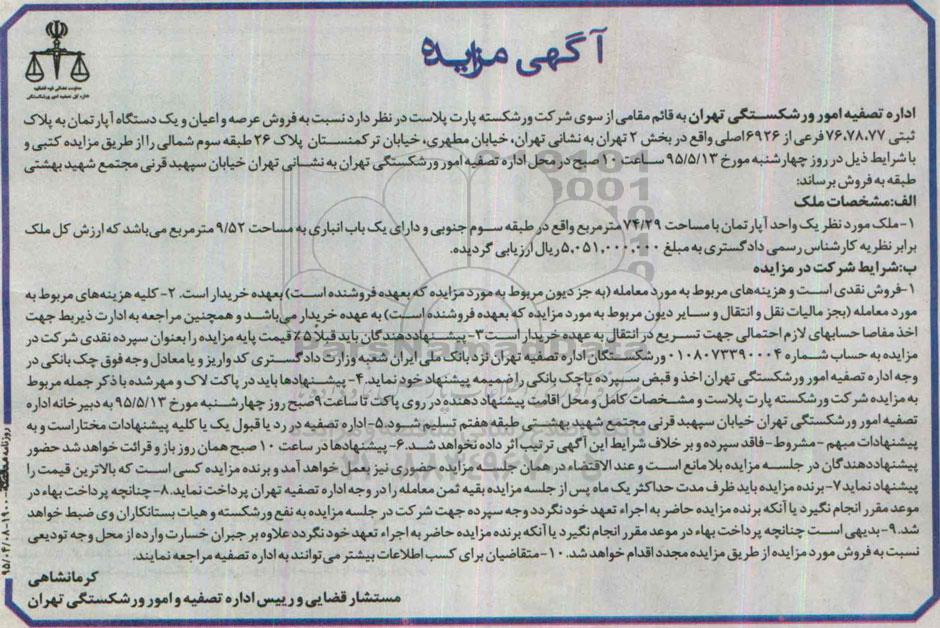 آگهی مزایده
معاونت قضائی قوه قضائیه
اداره کل تصفیه امور ورشکستگی
اداره تصفیه امور ورشکستگی تهران به قائم مقامی از سوی شرکت ورشکسته پارت پلاست در نظر دارد نسبت به فروش عرصه و اعیان و یک دستگاه آپارتمان به پلاک
ثبتی ۷۶،۷۸،۷۷ فرعی از ۶۹۲۶ اصلی واقع در بخش ۲ تهران به نشانی تهران، خیابان مطهری، خیابان ترکمنستان پلاک ۲۶ طبقه سوم شمالی را از طریق مزایده کتبی و
با شرایط ذیل در روز چهارشنبه مورخ ۹۵/۵/۱۳ ساعت ۱۰ صبح در محل اداره تصفیه امور ورشکستگی تهران به نشانی تهران خیابان سپهبد قرنی مجتمع شهید بهشتی
طبقه به فروش برساند:
الف: مشخصات ملک
۱- ملک مورد نظر یک واحد آپارتمان با مساحت ۷۴/۲۹ مترمربع واقع در طبقه سوم جنوبی و دارای یک باب انباری به مساحت ۹/۵۲ مترمربع می‌باشد که ارزش کل ملک
برابر نظریه کارشناس رسمی دادگستری به مبلغ ۵,۰۵۱,۰۰۰,۰۰۰ ریال ارزیابی گردیده.
ب: شرایط شرکت در مزایده
۱- فروش نقدی است و هزینه‌های مربوط به مورد معامله (به جز دیون مربوط به مورد مزایده که بعهده فروشنده است) بعهده خریدار است. ۲- کلیه هزینه‌های مربوط به
مورد معامله (بجز مالیات نقل و انتقال و سایر دیون مربوط به مورد مزایده که بعهده فروشنده است) به عهده خریدار می‌باشد و همچنین مراجعه به ادارت ذیربط جهت
اخذ مفاصا حسابهای لازم احتمالی جهت تسریع در انتقال به عهده خریدار است ۳- پیشنهاددهندگان باید قبلا ۷٪ قیمت پایه مزایده را بعنوان سپرده نقدی شرکت در
مزایده به حساب شماره ۰۱۰۸۰۷۳۳۹۰۰۰۴ ورشکستگان اداره تصفیه تهران نزد بانک ملی ایران شعبه وزارت دادگستری کد واریز و یا معادل وجه فوق چک بانکی در
وجه اداره تصفیه امور ورشکستگی تهران اخذ و قبض سپرده یا چک بانکی را ضمیمه پیشنهاد خود نماید. ۴- پیشنهادها باید در پاکت لاک و مهر شده با ذکر جمله مربوط
به مزایده شرکت ورشکسته پارت پلاست و مشخصات کامل و محل اقامت پیشنهاد دهنده در روی پاکت تا ساعت ۹ صبح روز چهارشنبه مورخ ۹۵/۵/۱۳ به دبیرخانه اداره
تصفیه امور ورشکستگی تهران خیابان سپهبد قرنی مجتمع شهید بهشتی طبقه هفتم تسلیم شود. ۵- اداره تصفیه در رد یا قبول یک یا کلیه پیشنهادات مختار است و به
پیشنهادات مبهم - مشروط - فاقد سپرده و بر خلاف شرایط این آگهی ترتیب اثر داده نخواهد شد. ۶- پیشنهادها در ساعت ۱۰ صبح همان روز باز و قرائت خواهد شد حضور
پیشنهاددهندگان در جلسه مزایده بلا مانع است و عند الاقتضاء در همان جلسه مزایده حضوری نیز بعمل خواهد آمد و برنده مزایده کسی است که بالاترین قیمت را
پیشنهاد نماید ۷- برنده مزایده باید ظرف مدت حداکثر یک ماه پس از جلسه مزایده بقیه ثمن معامله را در وجه اداره تصفیه تهران پرداخت نماید. ۸- چنانچه پرداخت بهاء در
موعد مقرر انجام نگیرد یا آنکه برنده مزایده حاضر به اجراء تعهد خود نگردد وجه سپرده جهت شرکت در جلسه مزایده به نفع ورشکسته و هیات بستانکاران وی ضبط خواهد
شد. ۹- بدیهی است چنانچه پرداخت بهاء در موعد مقرر انجام نگیرد یا آنکه برنده مزایده حاضر به اجراء تعهد خود نگردد علاوه بر جبران خسارت وارده از محل وجه تودیعی
نسبت به فروش مورد مزایده از طریق مزایده مجدد اقدام خواهد شد. ۱۰- متقاضیان برای کسب اطلاعات بیشتر می‌توانند به اداره تصفیه مراجعه نمایند.
کرمانشاهی
مستشار قضایی و رییس اداره تصفیه و امور ورشکستگی تهران